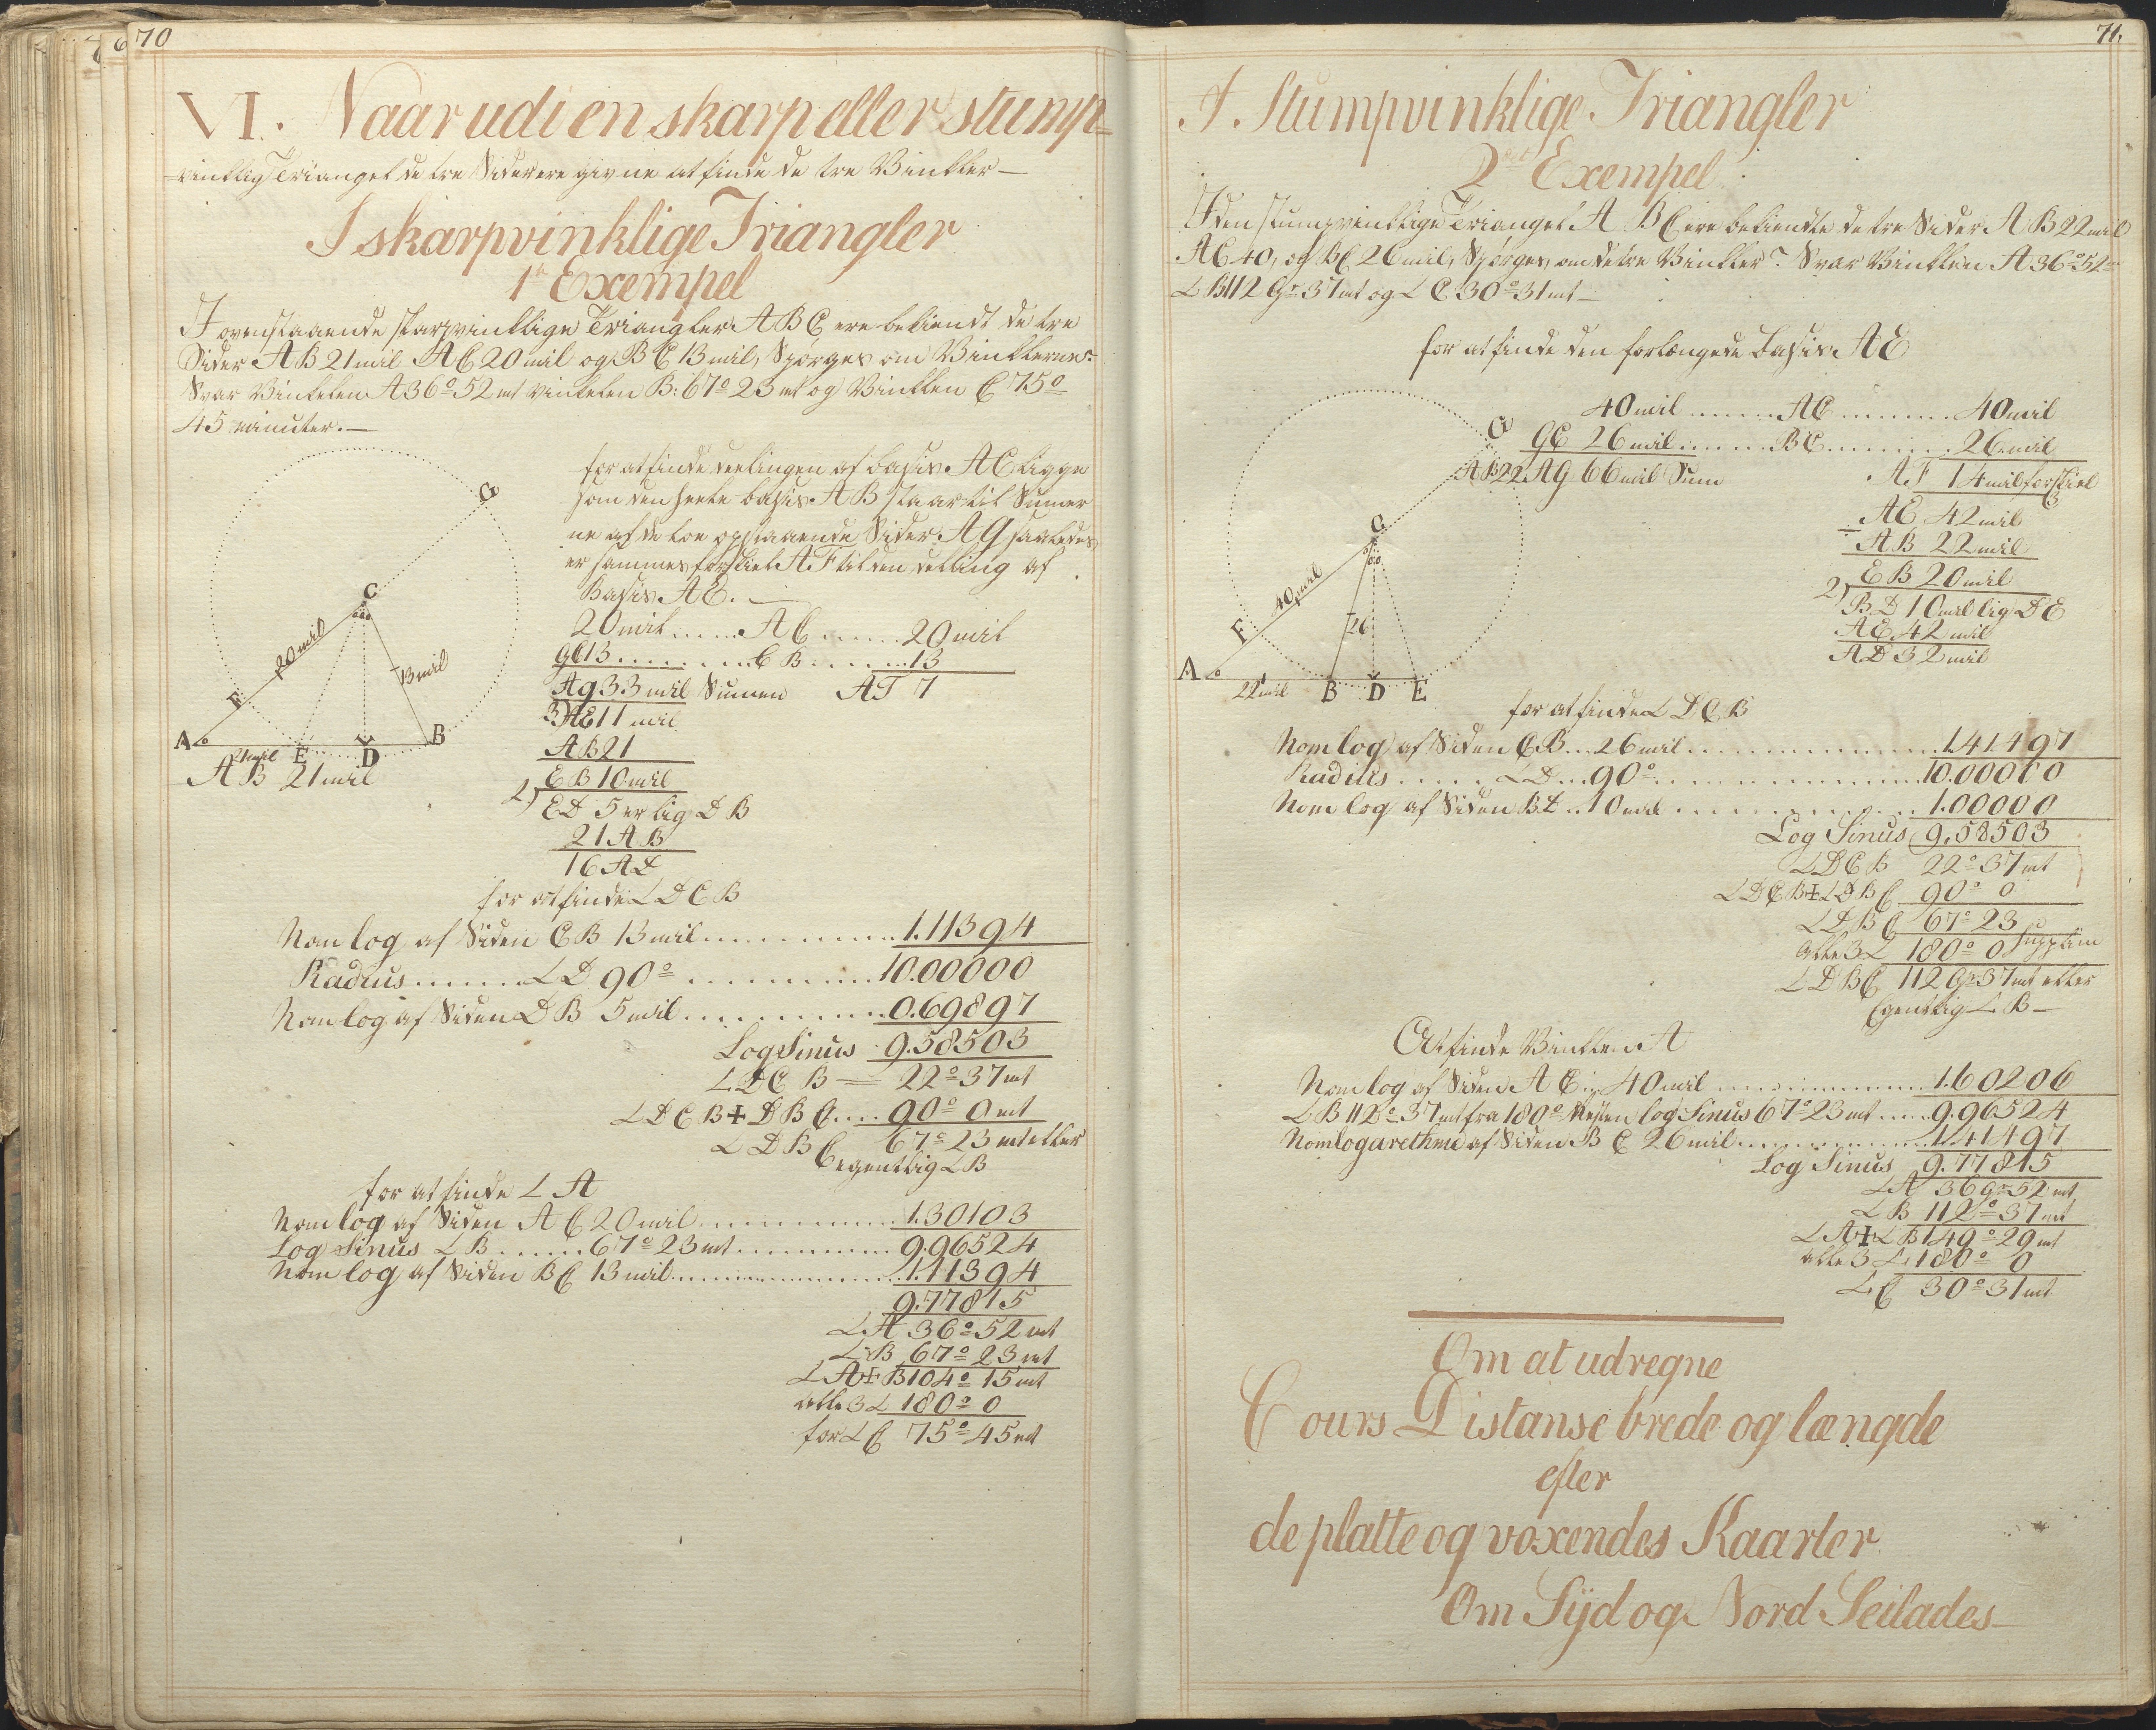 70
VI. Naar udi en skarp eller stump-
=vinklig Triangel de tre Sider ere givne at finde de tre Vinkler —
I skarpvinklige Triangler
1te Exempel
I ovenstaaende skarpvinklige Triangler ABC ere bekiendt de tre
Sider AB 21 mil AC 20 mil og BC 13 mil, Spørges om Vinklerne?
Svar Vinkelen A 36° 52 mt vinkelen B: 67° 23 mt og Vinklen C 75°
45 minuter. —
for at finde deelingen af basis AC ligge
som den heele basis AB staar til Sumer
ne af de toe opstaaende Sider AG saaledes
er sammes forskiel AF til den delling af
Basis AE. —
G
C
20 mil
13 mil
F
A
21 mil
E
D
B
AB 21 mil
20 mil ...... AC ...... 20 mil
GC 13 ......... CB ...... 13
AG 33 mil Sumen AF 7
3) AE 11 mil
AB 21
EB 10 mil
2) ED 5 er lig DB
21 AB
16 AD
for at finde ∠ DCB
Nom log af Siden CB 13 mil ............ 1.11394
Radius ....... ∠D 90° ............ 10.00000
Nom log af Siden DB 5 mil ............ 0.69897
Log Sinus 9.58503
∠ DCB — 22° 37 mt
∠ DCB + DBC .... 90° 0 mt
∠ DBC 67° 23 mt eller
egentlig ∠ B
for at finde ∠ A
Nom log af Siden AC 20 mil ............ 1.30103
Log Sinus ∠ B ...... 67° 23 mt ............ 9.96524
Nom log af Siden BC 13 mil ............ 1.11394
9.77815
∠ A 36° 52 mt
∠ B 67° 23 mt
∠ A + B 104° 15 mt
alle 3 ∠ 180° 0
for ∠ C 75° 45 mt
71.
I. Stumpvinklige Triangler
2det Exempel
I den stumpvinklige Triangel A BC ere bekiendte de tre Sider AB 22 mil
AC 40, og BC 26 mil, Spørges om de tre Vinkler? Svar Vinklen A 36° 52 mt
∠ B 112 Gr 37 mt og ∠ C 30° 31 mt —
for at finde den forlængede basis AE
G
C
40 mil
26
F
A
22 mil
B
D
E
40 mil ........ AC .......... 40 mil
GC 26 mil ........ BC .......... 26 mil
AB 22 AG 66 mil Sum AF 14 mil forskiel
3
AE 42 mil
÷ AB 22 mil
EB 20 mil
2) BD 10 mil lig DE
AE 42 mil
AD 32 mil
for at finde ∠ DCB
Nom log af Siden CB ... 26 mil .................. 1.41497
Radius ...... ∠D ... 90° .................. 10.00000
Nom log af Siden BD .. 10 mil .................. 1.00000
Log Sinus 9.58503
∠ DCB 22° 37 mt
∠ DCB + ∠ DBC 90° 0
∠ DBC 67° 23
alle 3 ∠ 180° 0 Supplim
∠ DBC 112 Gr 37 mt eller
Egentlig ∠ B —
At finde Vinklen A
Nom log af Siden AC ... 40 mil .................. 1.60206
∠ B 112° 37 mt fra 180° Resten log Sinus 67° 23 mt ..... 9.96524
Nom logarethme af Siden BC 26 mil .................. 1.41497
Log Sinus 9.77815
∠ A 36 Gr 52 mt
∠ B 112° 37 mt
∠ A + ∠ B 149° 29 mt
alle 3 ∠ 180° 0
∠ C 30° 31 mt
Om at udregne
Cours Distanse brede og længde
efter
de platte og voxendes Kaarter
Om Syd og Nord Seilades —